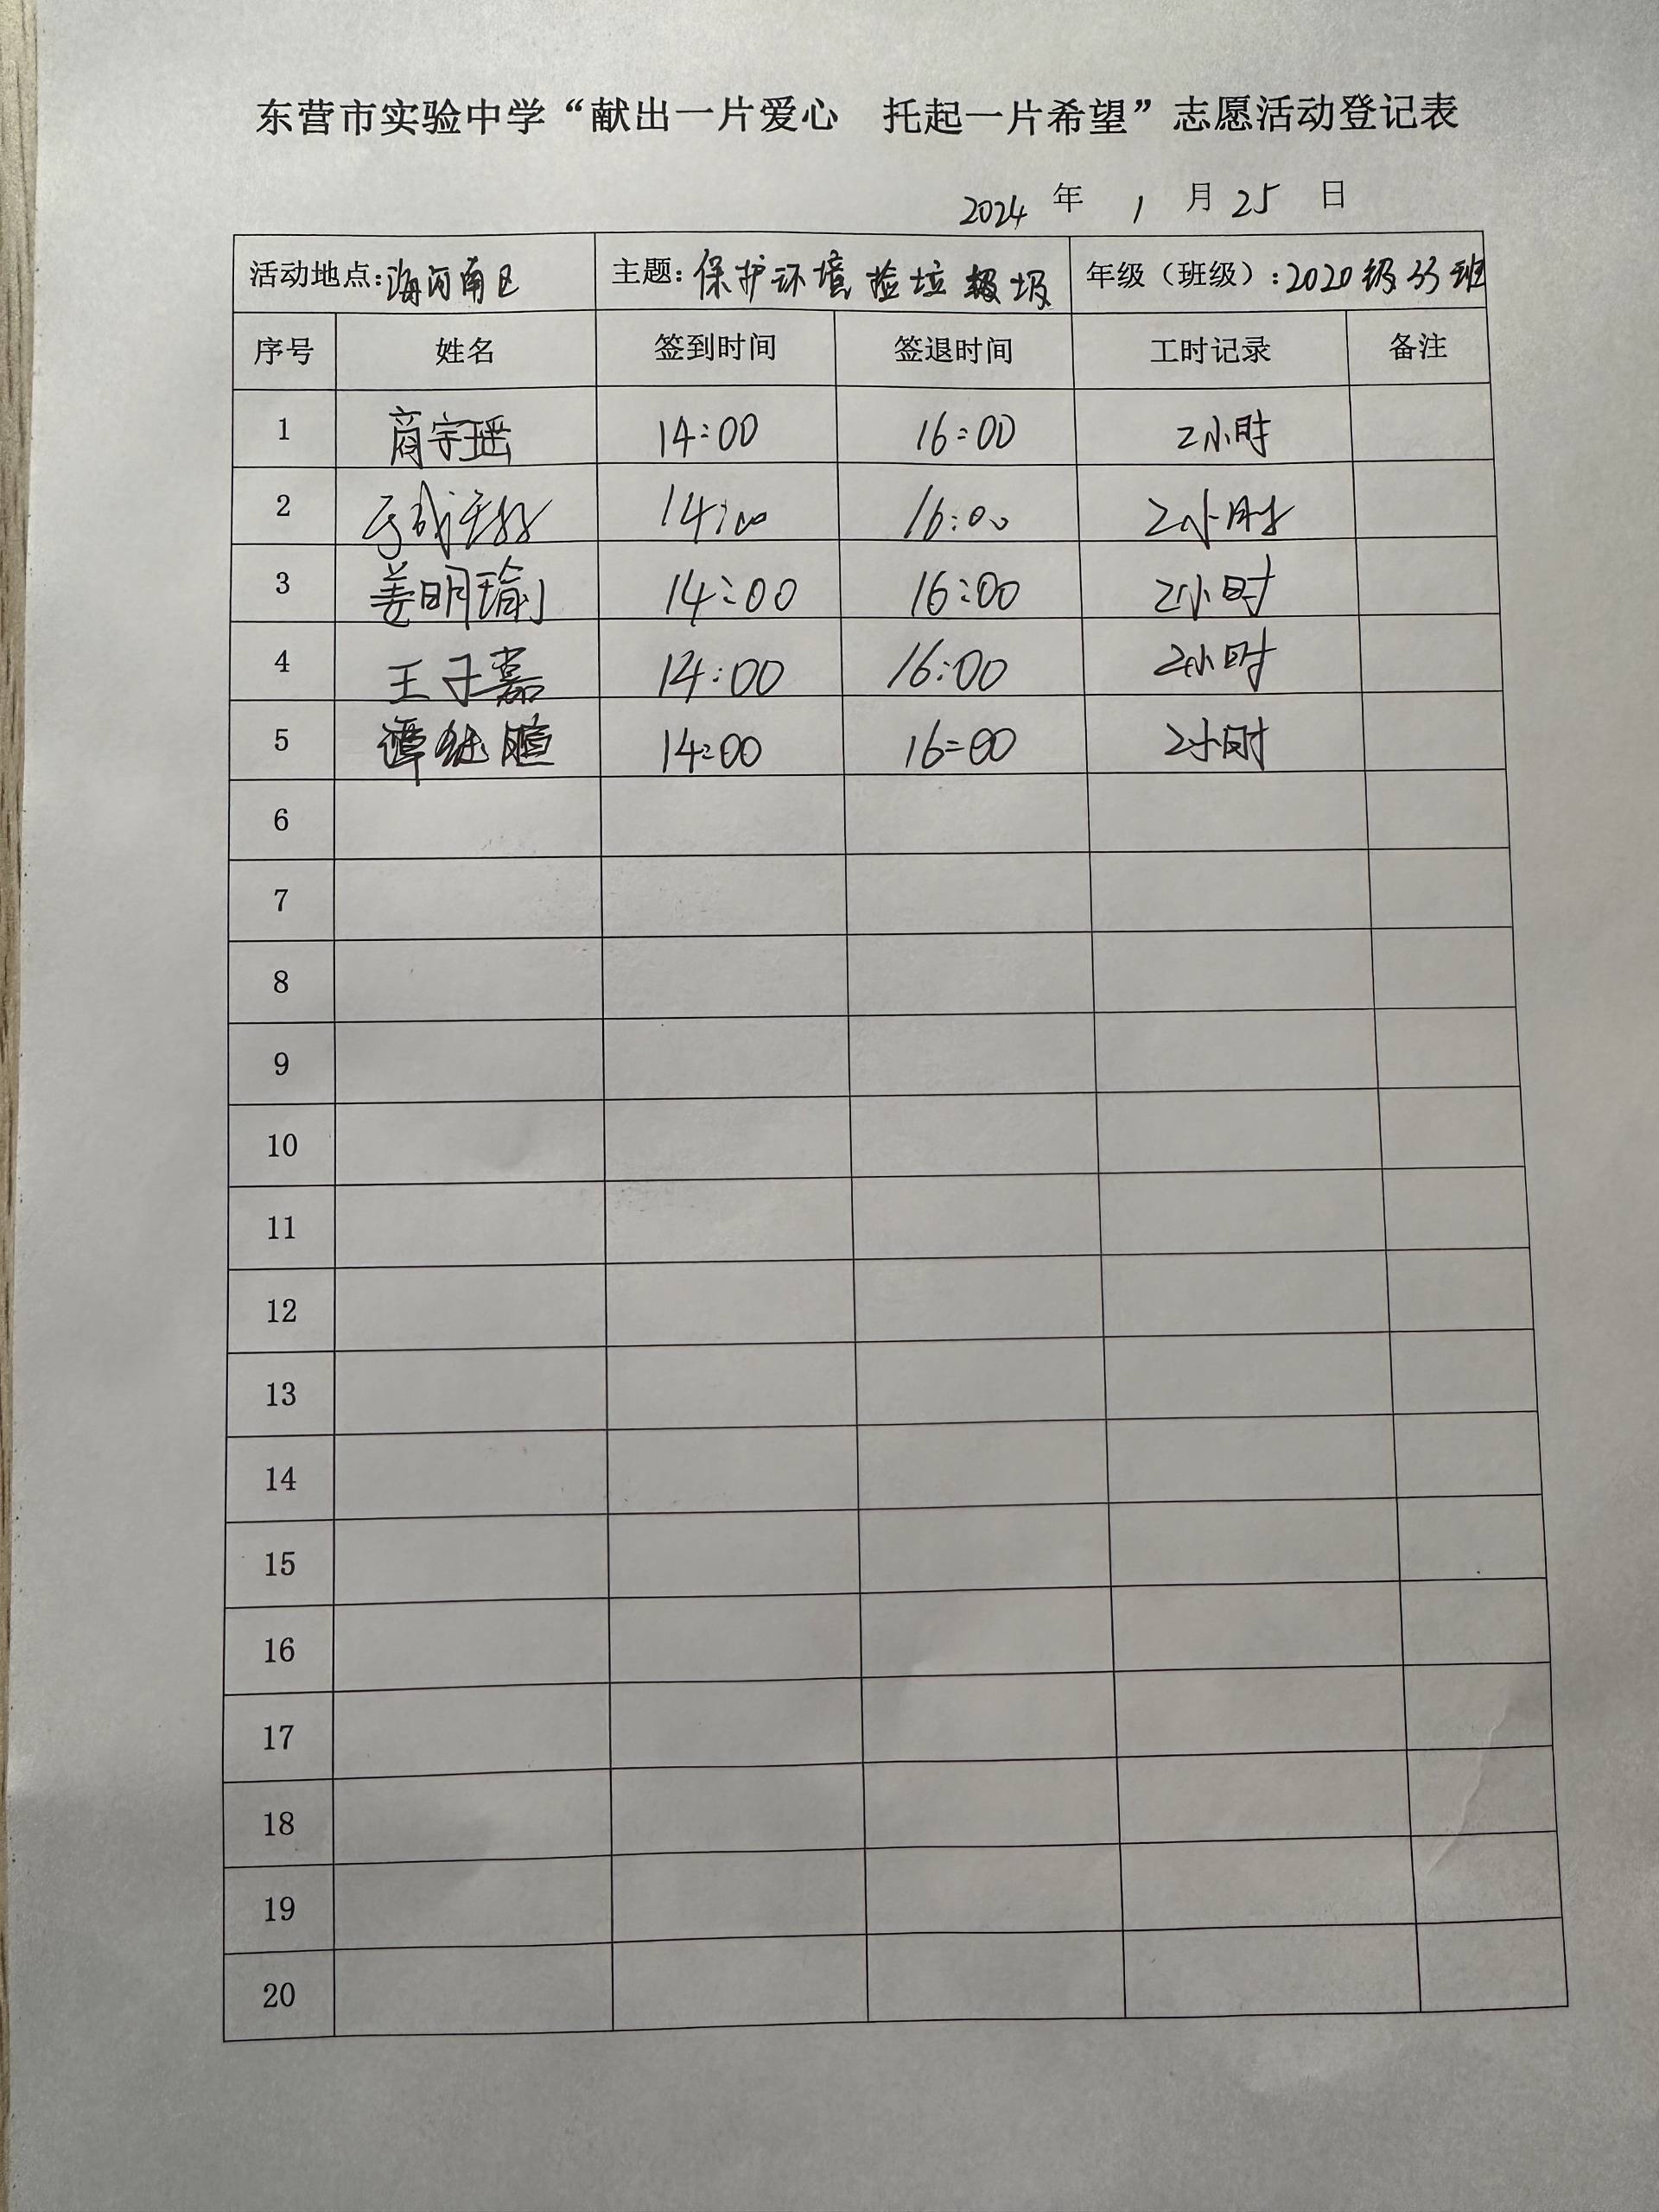 东营市实验中学“献出一片爱心 托起一片希望”志愿活动登记表
2024 年 1 月 25 日
活动地点:海河南区 主题:保护环境捡垃圾 年级（班级）:2020级33班
序号 姓名 签到时间 签退时间 工时记录 备注
1 商宇瑶 14:00 16:00 2小时
2 14:00 16:00 2小时
3 姜明瑜 14:00 16:00 2小时
4 王子嘉 14:00 16:00 2小时
5 谭 14:00 16:00 2小时
6
7
8
9
10
11
12
13
14
15
16
17
18
19
20